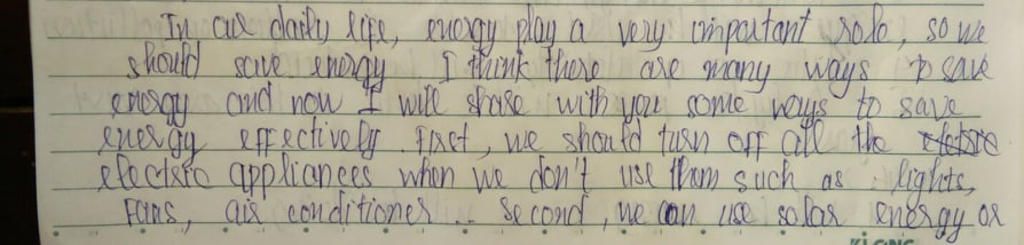 In our daily life, energy play a very important role, so we
should save energy. I think there are many ways to save
energy and now I will share with you some ways to save
energy effectively. First, we should turn off all the
electric appliances when we don't use them such as lights,
Fans, air conditioner... Second, we can use solar energy or
KLONG